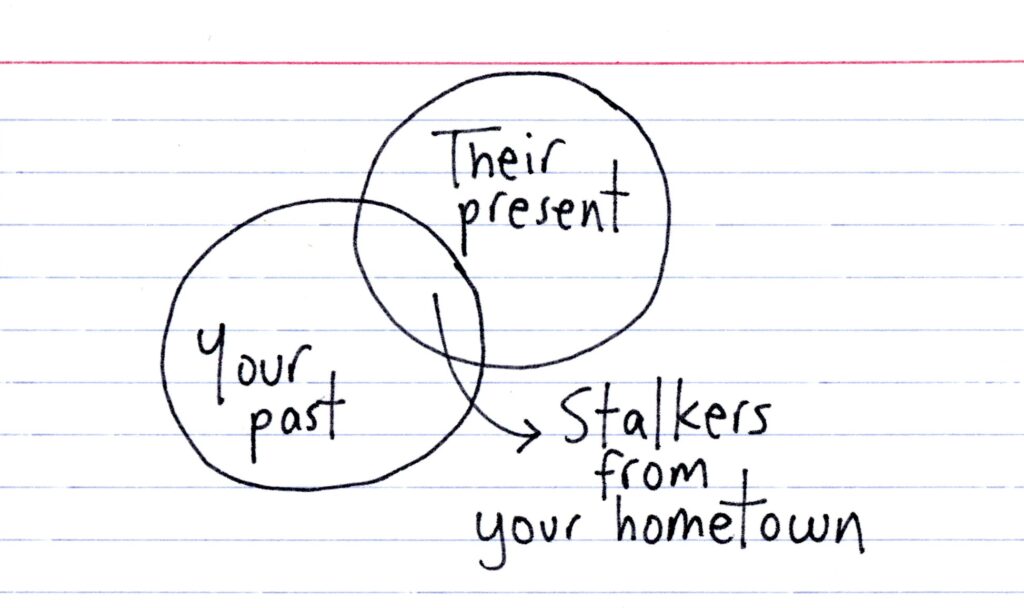 Their
present
Your
past
Stalkers
from
your hometown